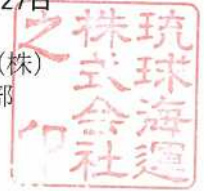 27日
(株)
部
琉球海運
株式会社
之印